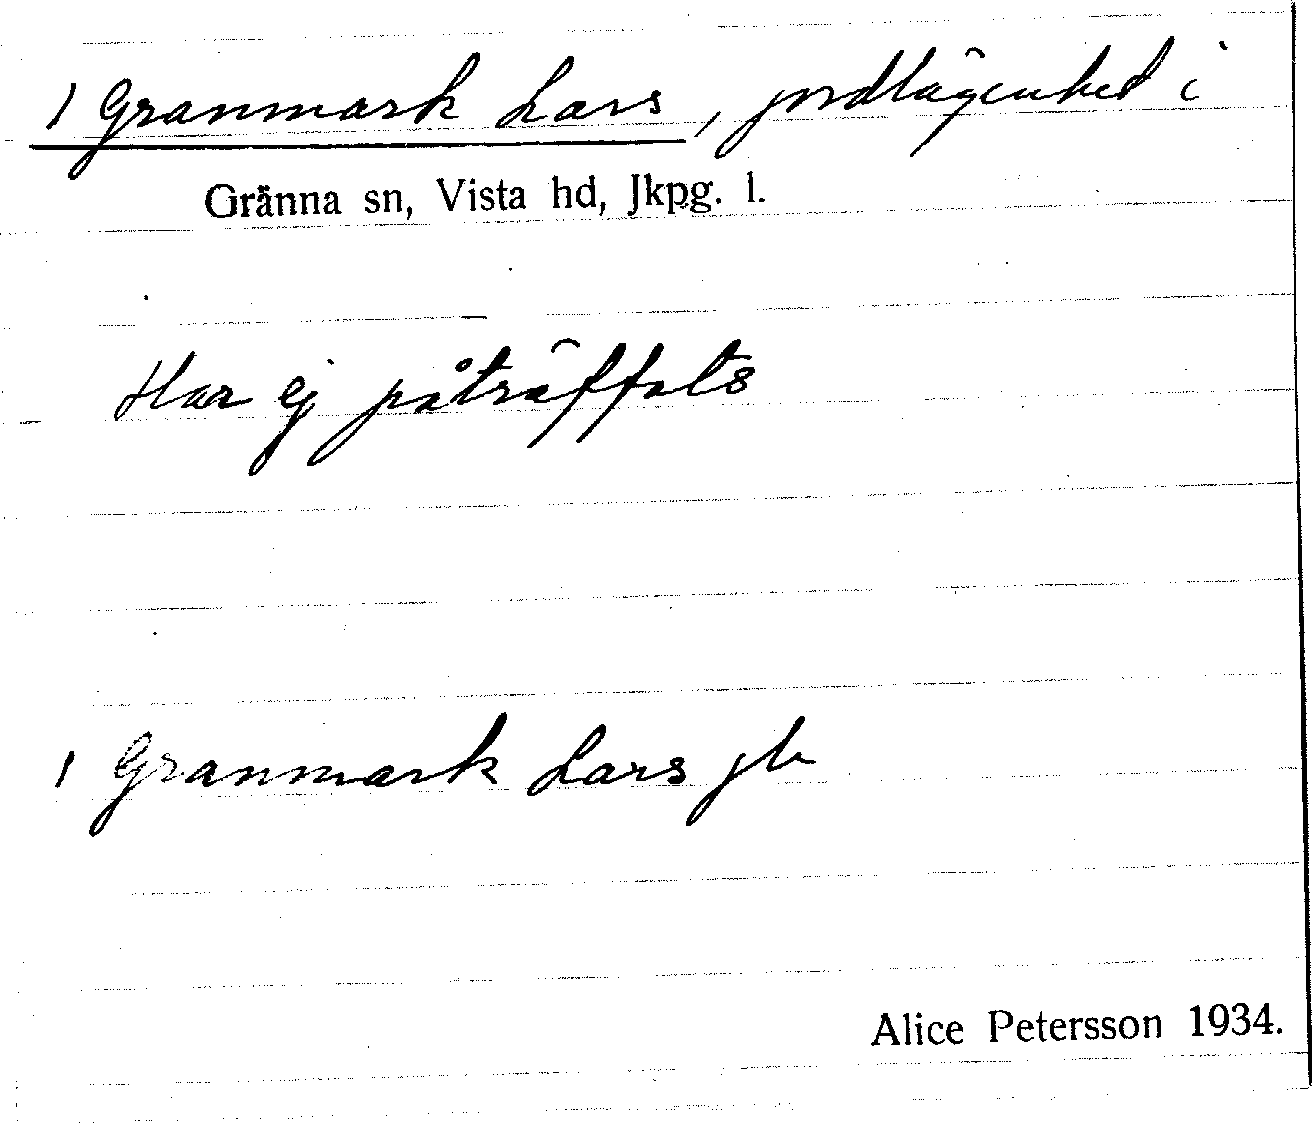 1 Granmark Lars, jordlägenhet i
Gränna sn, Vista hd, Jkpg. l.
Har ej påträffats
1 Granmark Lars jb
Alice Petersson 1934.